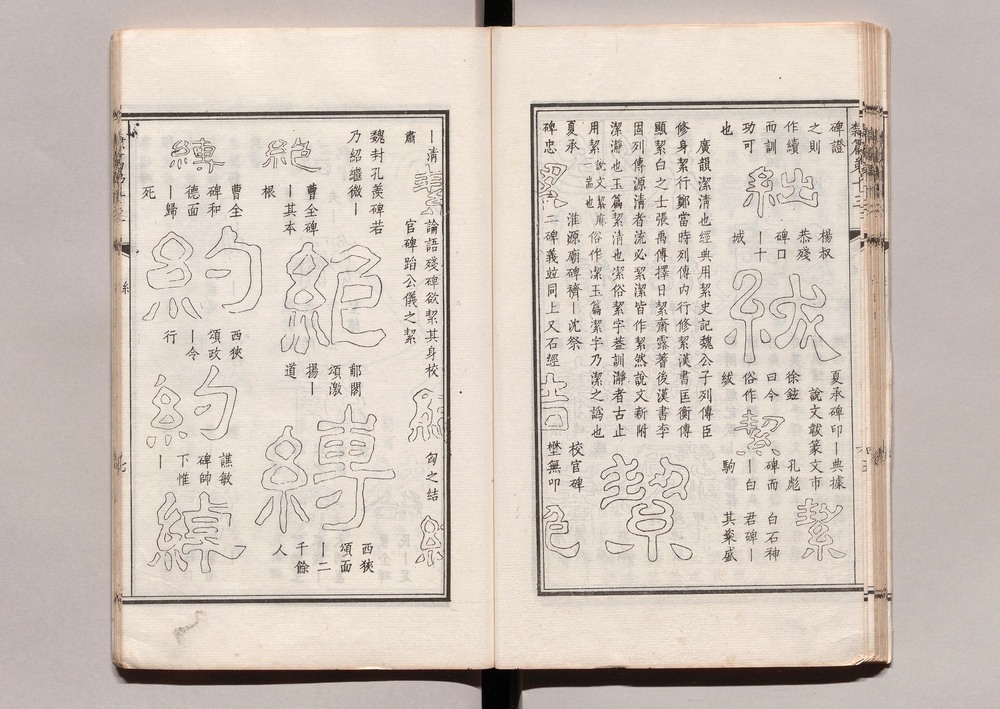 碑證
之則
作續
而訓
功可
也
絀
楊叔
恭殘
碑囗
｜十
城
紱
夏承碑印｜典據
說文韍篆文市
徐鉉
曰今
俗作
紱
絜
孔彪
碑而
｜白
駒
絜
白石神
君碑｜
其粢盛
廣韻潔清也經典用絜史記魏公子列傳臣
修身絜行鄭當時列傳内行修絜漢書匡衡傳
顯絜白之士張禹傳擇日絜齋露蓍後漢書李
固列傳源清者流必絜潔皆作絜然說文新附
潔瀞也玉篇絜清也潔俗絜字葢訓瀞者古止
用絜說文絜麻耑也俗作潔玉篇絜字乃潔之譌也
絜
夏承
碑忠
淮源廟碑齋｜沈祭
二碑義竝同上又石經
校官碑
㙡無叩
｜清
肅
論語殘碑欲絜其身校
官碑蹈公儀之絜
魏封孔羨碑若
乃紹繼微｜
絕
曹全碑
｜其本
根
絕
郙閣
頌激
揚｜
道
縛
西狹
頌面
｜二
千餘
人
縛
曹全
碑和
德面
｜歸
死
約
西狹
頌政
｜令
行
約
譙敏
碑帥
下惟
｜
綽